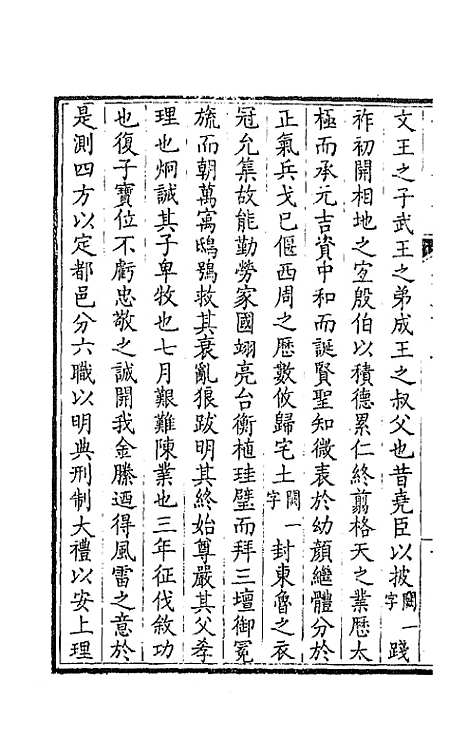 文王之子武王之弟成王之叔父也昔堯臣以披闕一字踐
祚初開相地之宜殷伯以積德累仁終翦格天之業歷太
極而承元吉資中和而誕賢聖知微表於幼顏繼體分於
正氣兵戈已偃西周之歷數攸歸宅土闕一字封東魯之衣
冠允集故能勤勞家國翊亮台衡植珪璧而拜三壇御冕
旒而朝萬㝢鴟鴞救其衰亂狼跋明其終始尊嚴其父孝
理也炯誠其子卑牧也七月艱難陳業也三年征伐敘功
也復子寶位不虧忠敬之誠開我金縢迺得風雷之意於
是測四方以定都邑分六職以明典刑制大禮以安上理